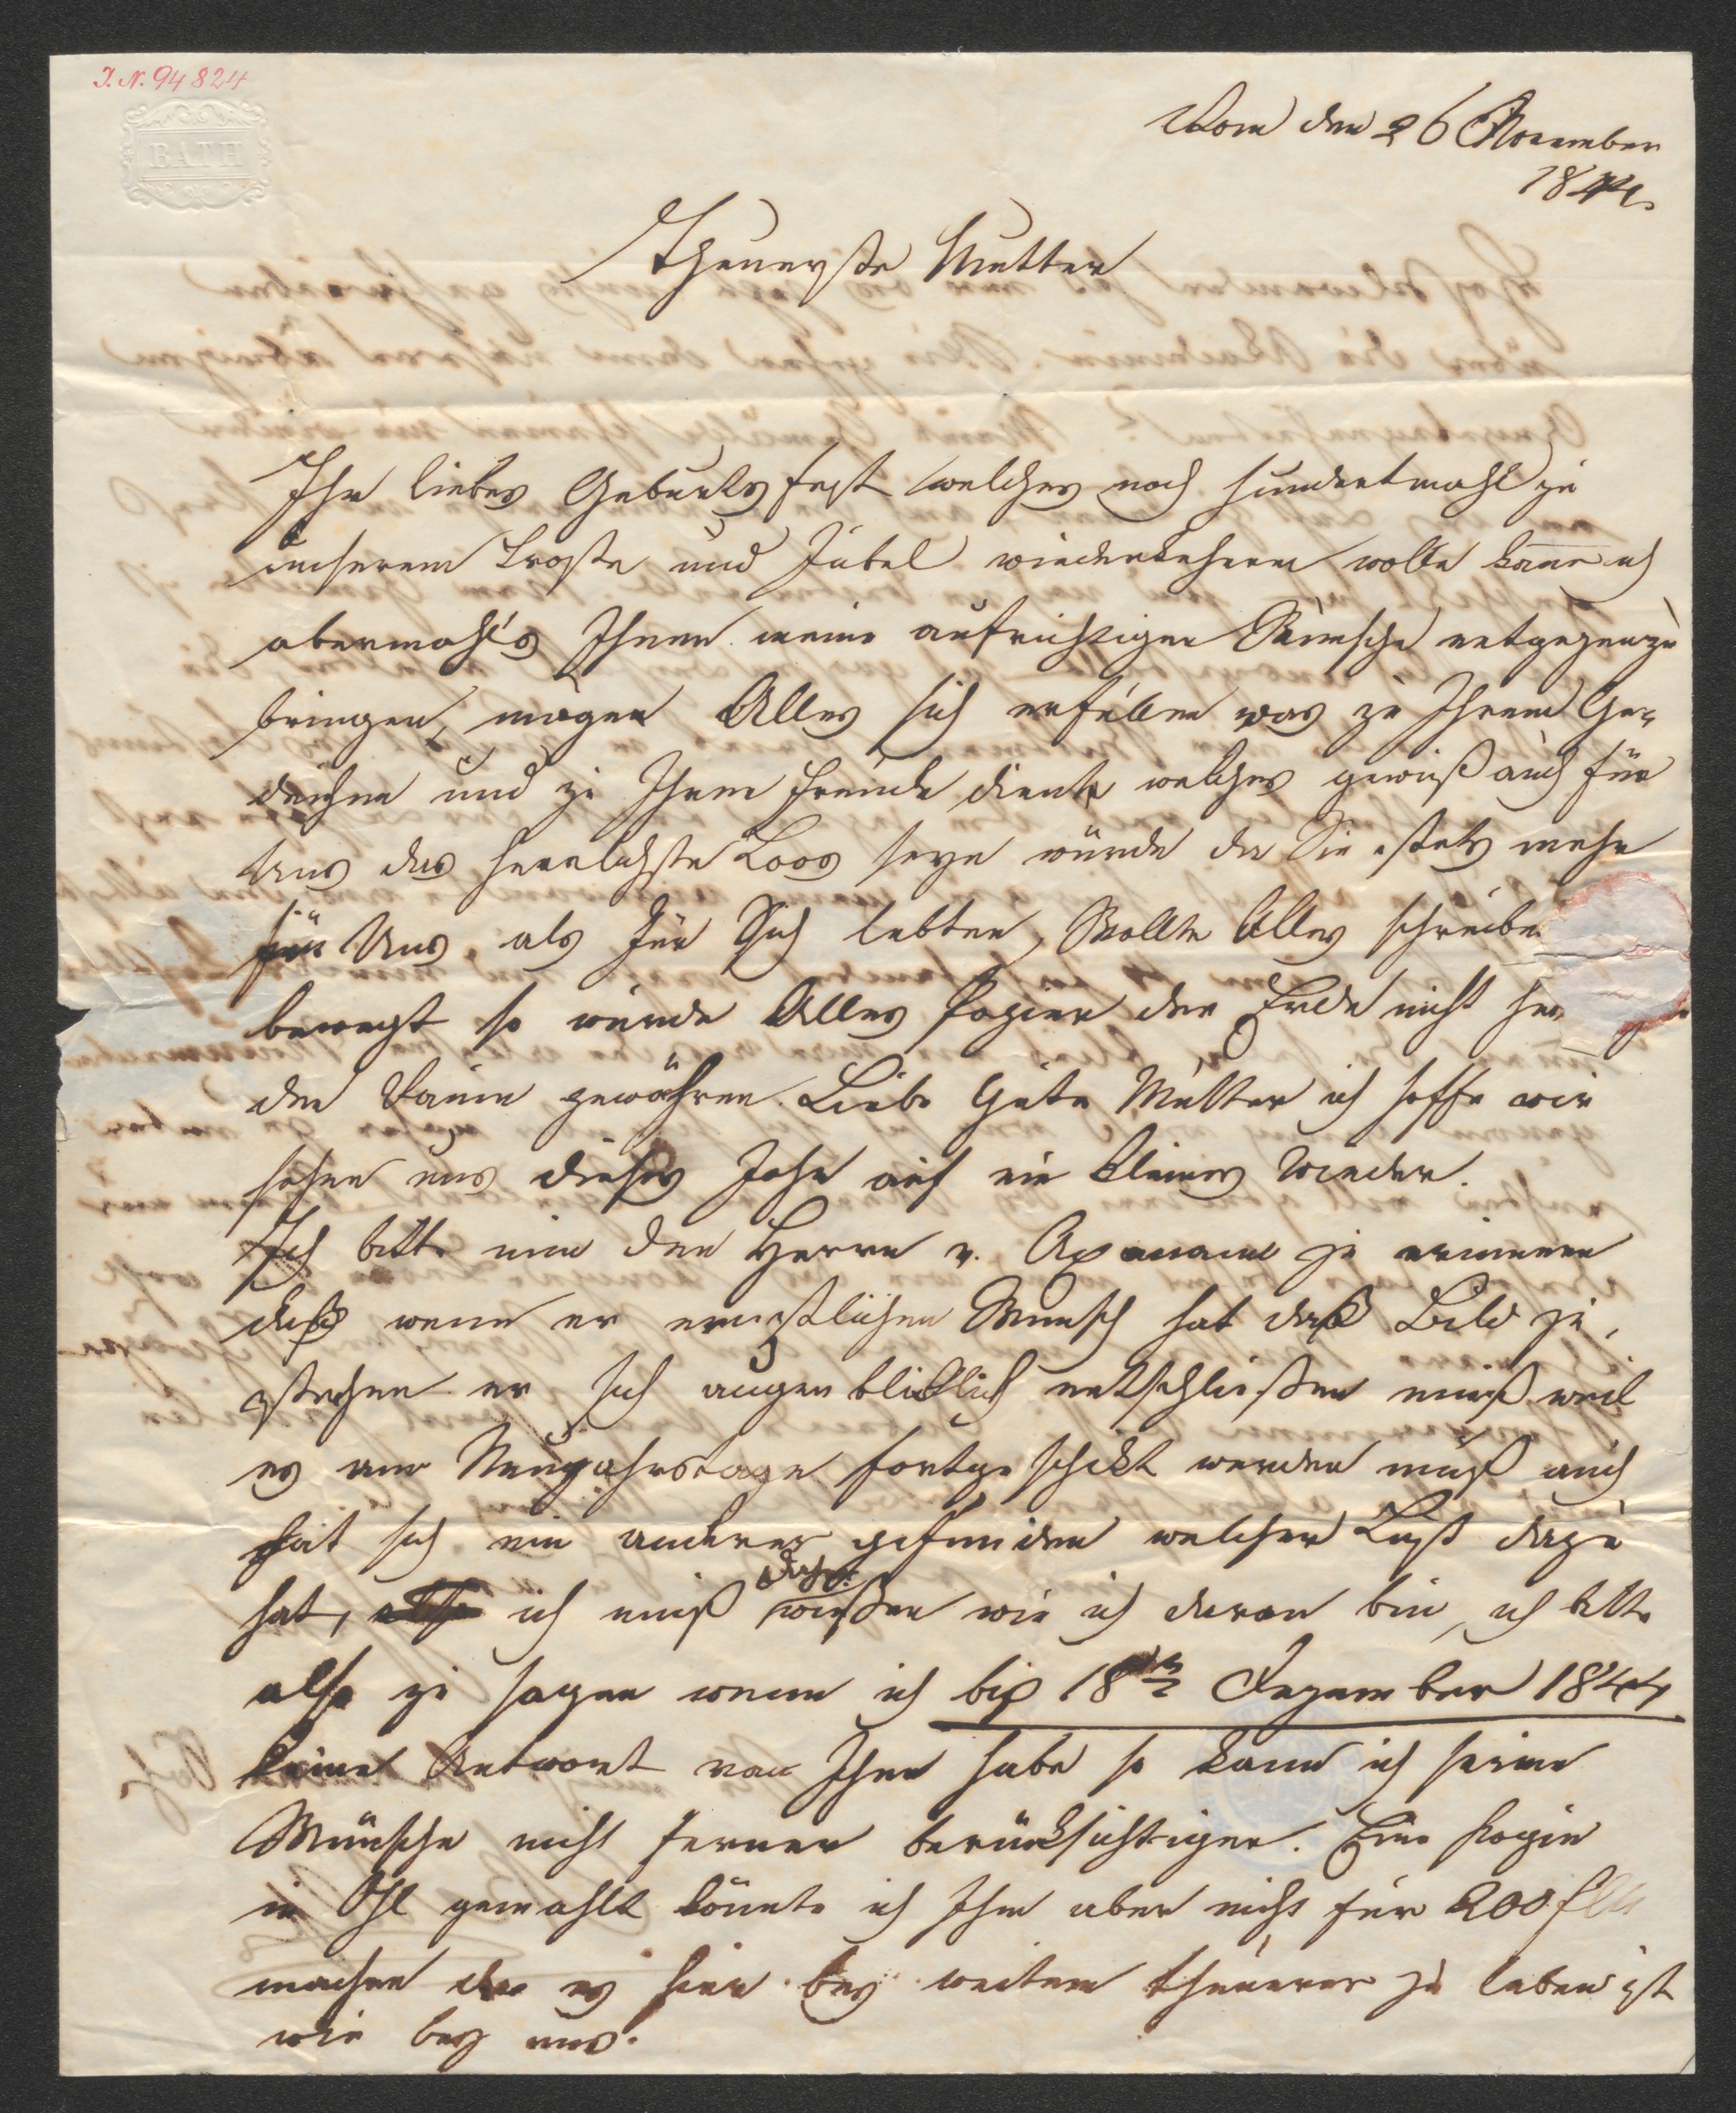 I. N. 94824
BATH
Rom den 26 November
1844.
Theuerste Mutter
Ihr liebes Geburtsfest welches noch hundertmahl zu
unserem Troste und Jubel wiederkehren wolle kann ich
abermahls Ihnen meine aufrichtigen Wünsche entgegenzu
bringen, mögen Alles sich erfüllen was zu Ihrem Ge-
deihen und zu Ihrer Freude dient welches gewiß auch für
Uns das herrlichste Loos seyn würde da Sie stets mehr
für Uns als für Sich lebten, Wollte Alles schreibe
bewegt so würde Alles Papier der Erde nicht
den Raum gewähren. Liebe Gute Mutter ich hoffe wir
sehen uns dieses Jahr auf ein kleines wieder.
Ich bitte nun den Herrn v. Axmann zu erinnern
daß wenn er ernstlichen Wunsch hat daß Bild zu
stechen er sich augenblicklich entschließen muß weil
es am Neujahrstage fortgeschickt werden muß auch
hat sich ein anderer gefunden welcher Lust dazu
hat, ich muß wißen wie ich daran bin, ich bitte
also zu sagen wenn ich bis 18ten Dezember 1844
keine Antwort von Ihm habe so kann ich seine
Wünsche nicht ferner berücksichtigen. Eine Kopie
in Öhl gemahlt könnte ich Ihm aber nicht für 200 fl
machen da es hier bey weitem theuerer zu leben ist
wie bey uns.